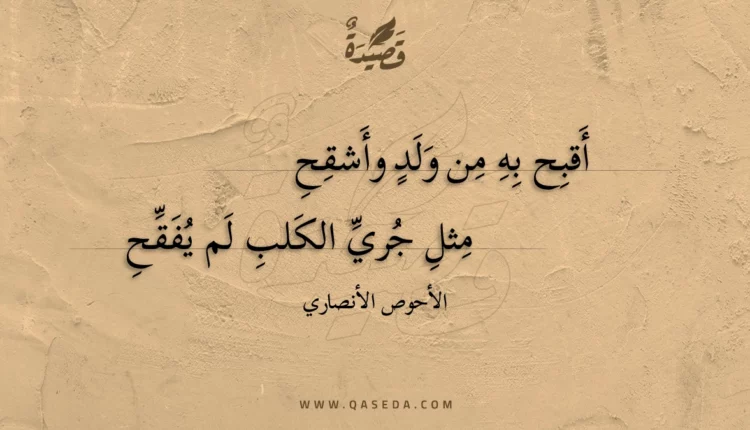 قَصِيْدَةٌ
أَقبِح بِهِ مِن وَلَدٍ وأَشقِحِ
مِثلِ جُريِّ الكَلبِ لَم يُفَقِّحِ
الأحوص الأنصاري
WWW.QASEDA.COM